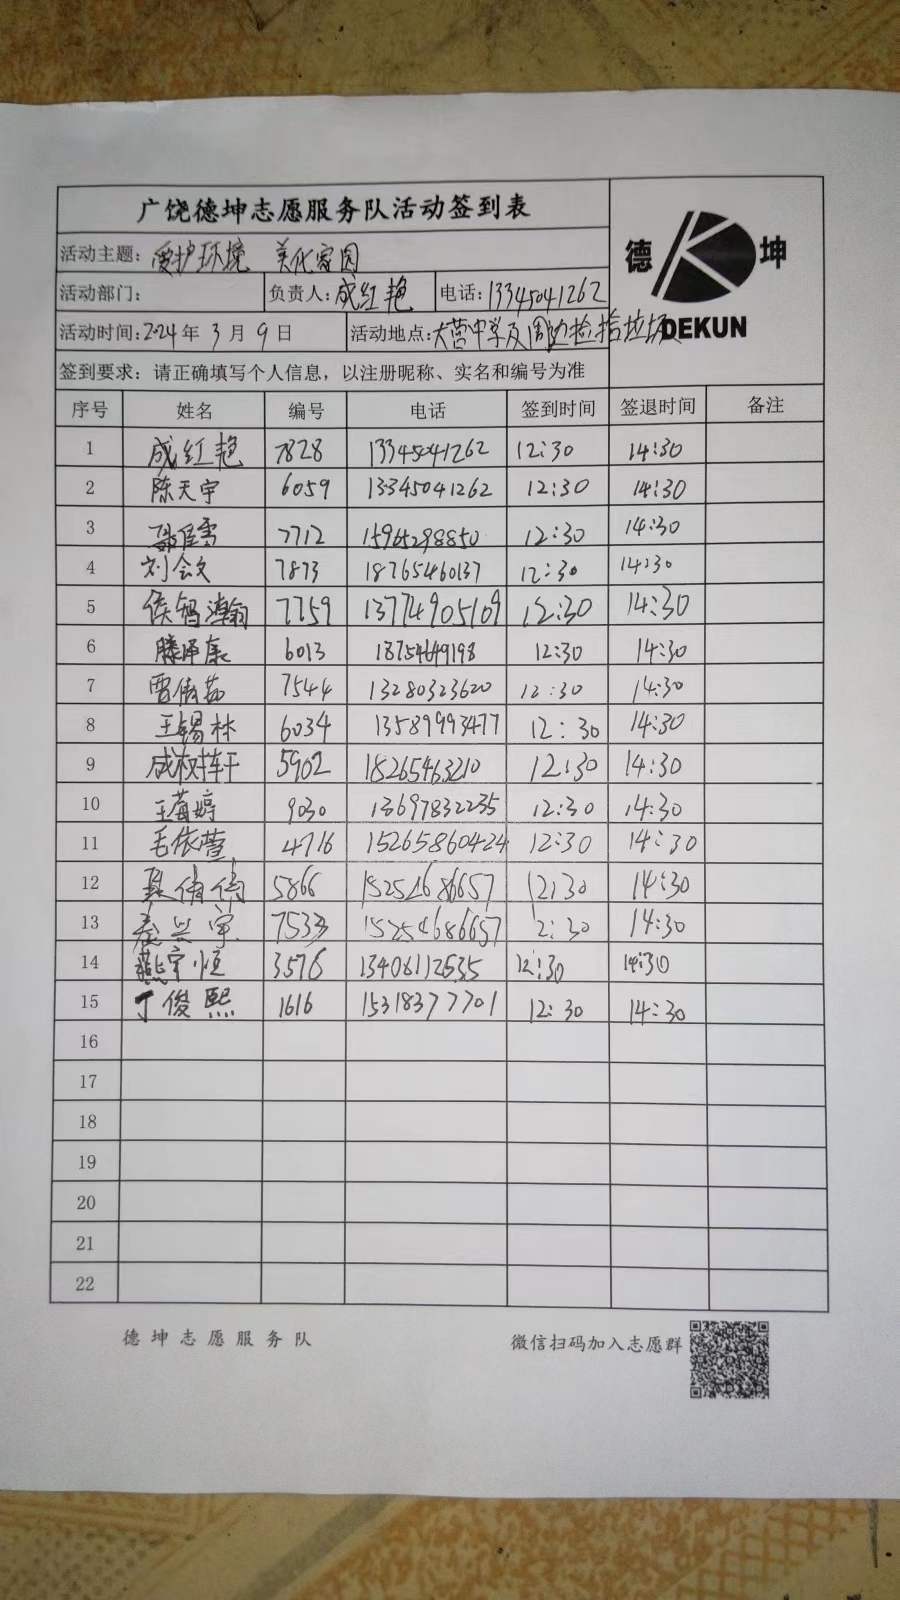 广饶德坤志愿服务队活动签到表
德 坤
DEKUN
活动主题：爱护环境 美化家园
活动部门： 负责人：成红艳 电话：13345041262
活动时间：2024年 3月 9日 活动地点：大营中学及周边捡拾垃圾
签到要求：请正确填写个人信息，以注册昵称、实名和编号为准
序号 姓名 编号 电话 签到时间 签退时间 备注
1 成红艳 7828 13345041262 12:30 14:30
2 陈天宇 6059 13345041262 12:30 14:30
3 7712 15965298850 12:30 14:30
4 刘会文 7873 18765460137 12:30 14:30
5 侯智瀚 7759 13774905109 12:30 14:30
6 滕泽康 6013 18754649198 12:30 14:30
7 7544 13280323620 12:30 14:30
8 王锡林 6034 13589993477 12:30 14:30
9 成权轩 5902 18265463210 12:30 14:30
10 王莓婷 9030 13697832235 12:30 14:30
11 毛依萱 4716 15265860424 12:30 14:30
12 倩倩 5866 15254686657 12:30 14:30
13 秦兴宇 7533 15254686657 12:30 14:30
14 燕宇恒 3576 13406112535 12:30 14:30
15 丁俊熙 1616 15318377701 12:30 14:30
16
17
18
19
20
21
22
德坤志愿服务队 微信扫码加入志愿群